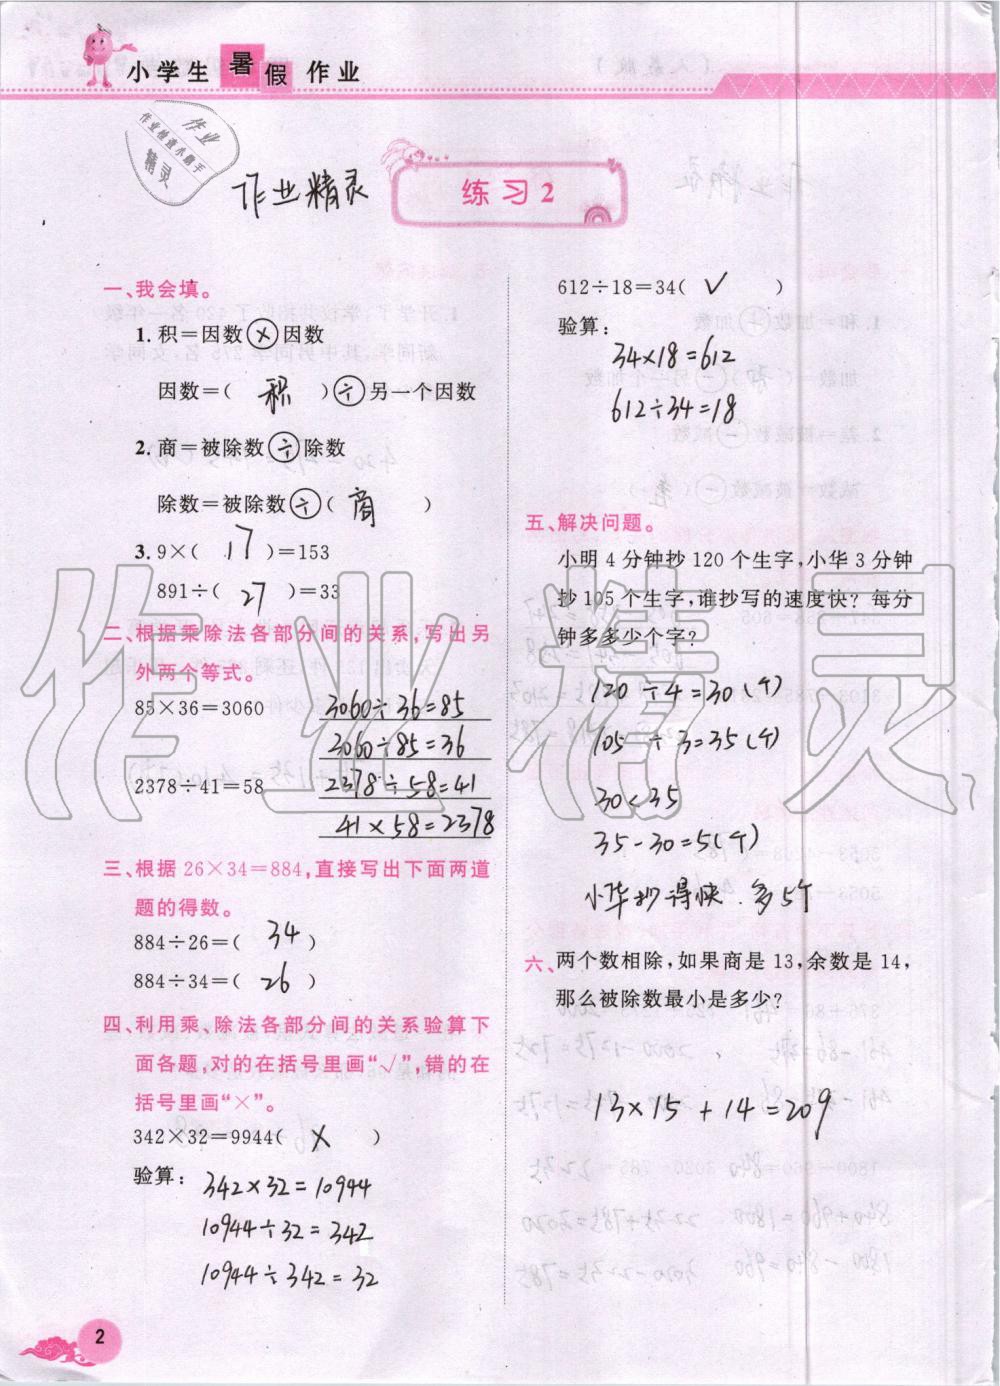 小学生暑假作业
作业
作业检查小助手
精灵
作业精灵
练习2
一、我会填。
1.积=因数(×)因数
因数=( 积 )(÷)另一个因数
2.商=被除数(÷)除数
除数=被除数(÷)( 商 )
3.9×( 17 )=153
891÷( 27 )=33
二、根据乘除法各部分间的关系,写出另
外两个等式。
85×36=3060 3060÷36=85
3060÷85=36
2378÷41=58 2378÷58=41
41×58=2378
三、根据26×34=884,直接写出下面两道
题的得数。
884÷26=( 34 )
884÷34=( 26 )
四、利用乘、除法各部分间的关系验算下
面各题,对的在括号里画“√”,错的在
括号里画“×”。
342×32=9944( × )
验算: 342×32=10944
10944÷32=342
10944÷342=32
612÷18=34( √ )
验算:
34×18=612
612÷34=18
五、解决问题。
小明4分钟抄120个生字,小华3分钟
抄105个生字,谁抄写的速度快?每分
钟多多少个字?
120÷4=30(个)
105÷3=35(个)
30<35
35-30=5(个)
小华抄得快.多5个
六、两个数相除,如果商是13,余数是14,
那么被除数最小是多少?
13×15+14=209
2
作业精灵